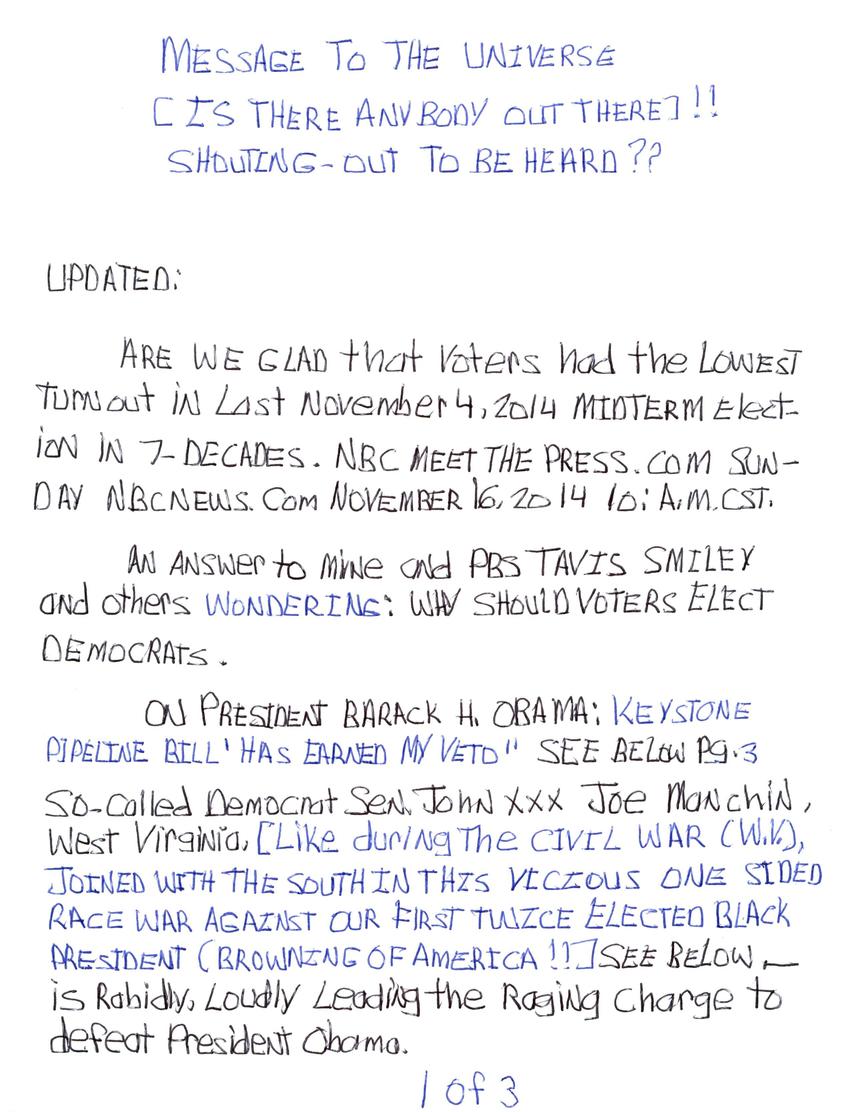 MESSAGE TO THE UNIVERSE
[ IS THERE ANYBODY OUT THERE] !!
SHOUTING-OUT TO BE HEARD ??
UPDATED:
ARE WE GLAD that Voters had the LOWEST
Turnout in Last November 4, 2014 MIDTERM Elect-
ion IN 7-DECADES. NBC MEET THE PRESS. COM SUN-
DAY NBCNEWS. Com NOVEMBER 16, 2014 10: A.M. CST.
AN ANSWer to Mine and PBS TAVIS SMILEY
and others WONDERING: WHY SHOULD VOTERS ELECT
DEMOCRATS.
ON PRESIDENT BARACK H. OBAMA: KEYSTONE
PIPELINE BILL 'HAS EARNED MY VETO" SEE BELOW Pg. 3
So-Called Democrat Sen. John XXX Joe Manchin,
West Virginia, [Like during The CIVIL WAR (W.V.),
JOINED WITH THE SOUTH IN THIS VICIOUS ONE SIDED
RACE WAR AGAINST OUR FIRST TWICE ELECTED BLACK
PRESIDENT (BROWNING OF AMERICA !!] SEE BELOW —
is Rabidly, Loudly Leading the Raging Charge to
defeat President Obama.
1 of 3